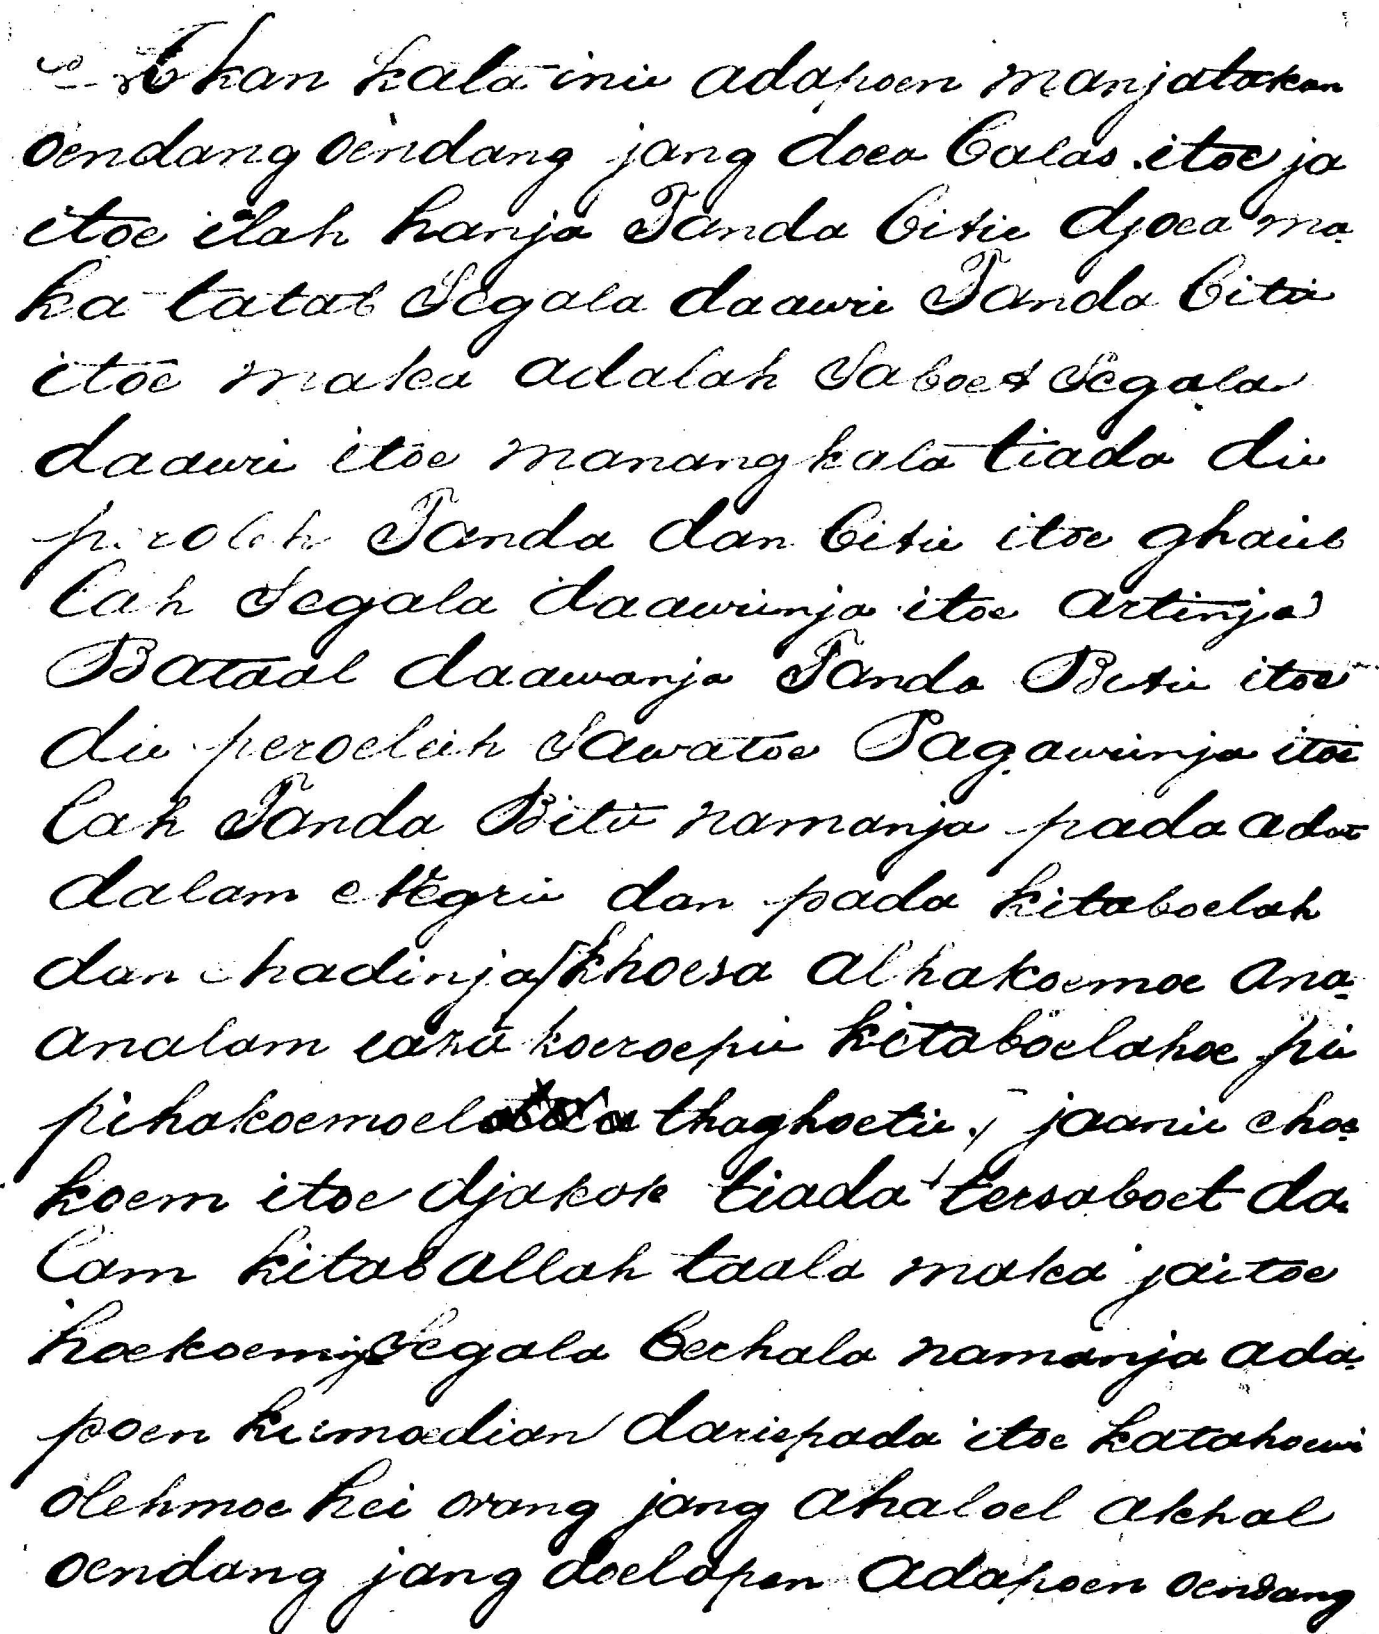 Akan kala inii adapoen manjatakan
oendang oendang jang doea balas itoe ja
itoe ilah hanja Tanda bitii djoea ma
ka tatab Segala daawii Tanda bitii
itoe maka adalah Saboet Segala
daawii itoe manangkala tiada dii
peroleh Tanda dan bitii itoe ghaiib
lah Segala daawiinja itoe artinja
Bataal daawanja Tanda Bitii itoe
dii peroleih Sawatoe Pagawiinja itoe
lah Tanda Bitii namanja pada adat
dalam Negrii dan pada kitaboelah
dan hadinja khoesa alhakoemoe ana
analam koeroepii kitaboelahoe pii
pihakoemoel thaghoetii jaanii choe
koem itoe djakok tiada tersaboet da
lam kitab allah taala maka jaitoe
hoekoeminja Segala berhala namanja ada
poen kiemoedian dariepada itoe katahoewi
olehmoe hei orang jang ahaloel akhal
oendang jang doelapan adapoen oendang